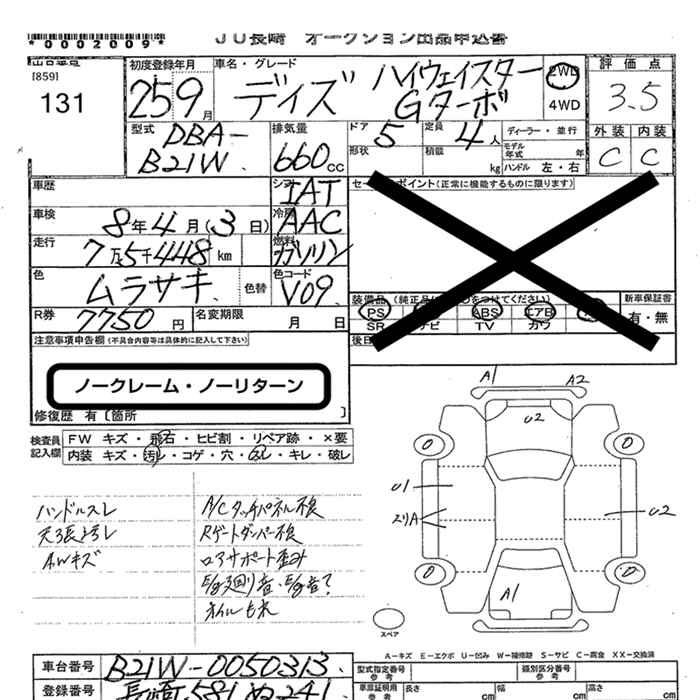 *0002009*
JU長崎 オークション出品申込書
[859]
131
初度登録年月
25 9月
車名・グレード
デイズ ハイウェイスター
Gターボ
2WD
4WD
評価点
3.5
外装 内装
C C
型式
DBA-
B21W
排気量
660cc
ドア 5
定員 4人
形状
積載 kg
ディーラー・並行
モデル年式 年
ハンドル 左・右
車歴
シフト IAT
セールスポイント(正常に機能するものに限ります)
車検
8年4月(3日)
冷房 AAC
走行
7万5千448km
燃料 ガソリン
色
ムラサキ
色替
色コード
V09
装備品 (純正品に○をつけてください)
PS ABS エアB
SR ナビ TV カワ
新車保証書
有・無
R券
7750円
名変期限
月 日
注意事項申告欄(不具合内容等は具体的に記入して下さい)
ノークレーム・ノーリターン
修復歴 有〔箇所 〕
検査員記入欄
FW キズ・飛石・ヒビ割・リペア跡・×要
内装 キズ・汚レ・コゲ・穴・スレ・キレ・破レ
ハンドルスレ
天張汚レ
AWキズ
A/Cタッチパネル不良
Rゲートダンパー不良
ロアサポート歪み
E/g廻り音・E/g音?
オイルもれ
A1 A2
U2
0 0
U1
エリA
U2
0 0
A1
スペア
A-キズ E-エクボ U-凹み W-補修跡 S-サビ C-腐食 XX-交換済
車台番号
B21W-0050313
型式指定番号
参考
類別区分番号
参考
登録番号
車庫証明用
参考
長さ cm
幅 cm
高さ cm